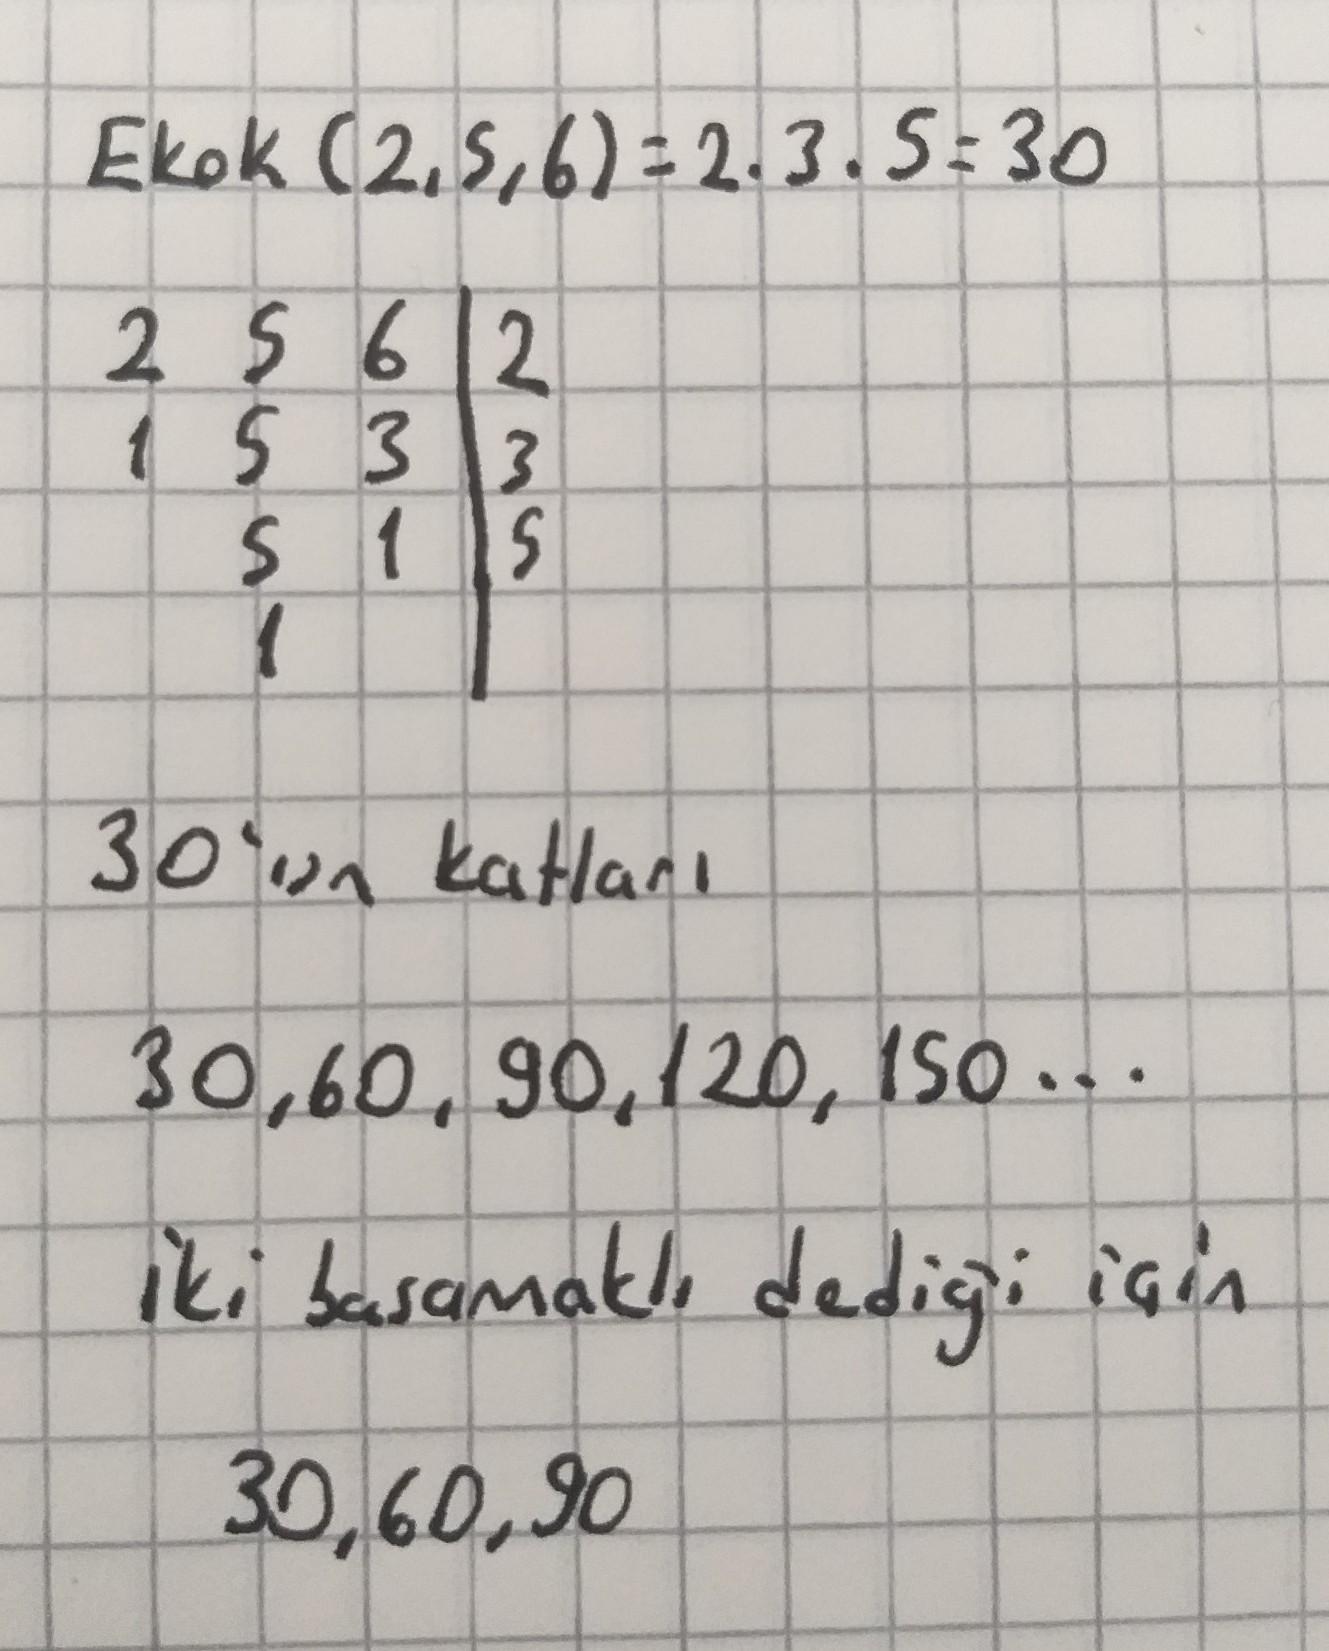 Ekok (2,5,6) = 2.3.5 = 30
2 5 6 | 2
1 5 3 | 3
5 1 | 5
1
30'un katları
30,60,90,120,150...
iki basamaklı dediği için
30,60,90